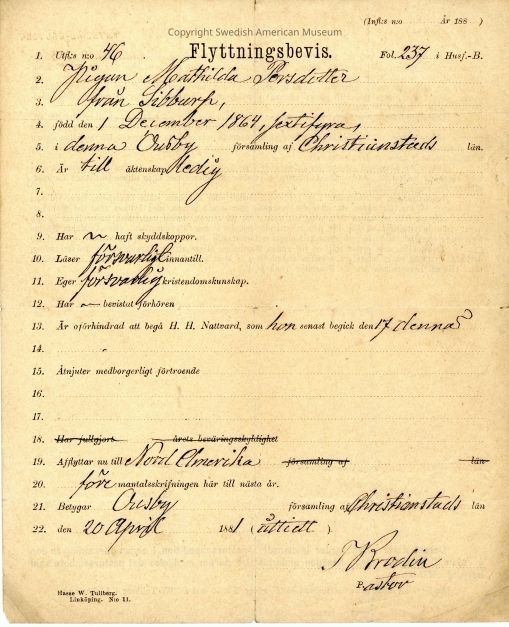 Copyright Swedish American Museum
(Infl: n:o År 188 )
1. Utfl: n:o 46. Flyttningsbevis. Fol. 237 i Husf.-B.
2. Pigan Mathilda Persdotter
3. från Sibburp,
4. född den 1 December 1864, sextifyra,
5. i denna Ousby församling af Christianstads län.
6. Är till äktenskap ledig
7.
8.
9. Har ~ haft skyddskoppor.
10. Läser försvarligt innantill.
11. Eger försvarlig kristendomskunskap.
12. Har — bevistat förhören
13. Är oförhindrad att begå H. H. Nattvard, som hon senast begick den 17 dennas
14.
15. Åtnjuter medborgerligt förtroende
16.
17.
18. Har fullgjort årets beväringsskyldighet
19. Afflyttar nu till Nord Amerika församling af län
20. före mantalsskrifningen här till nästa år.
21. Betygar Ousby församling af Christianstads län
22. den 20 April 1881 (åttiett ).
Brodin
Pastor
Hasse W. Tullberg.
Linköping. N:o 11.